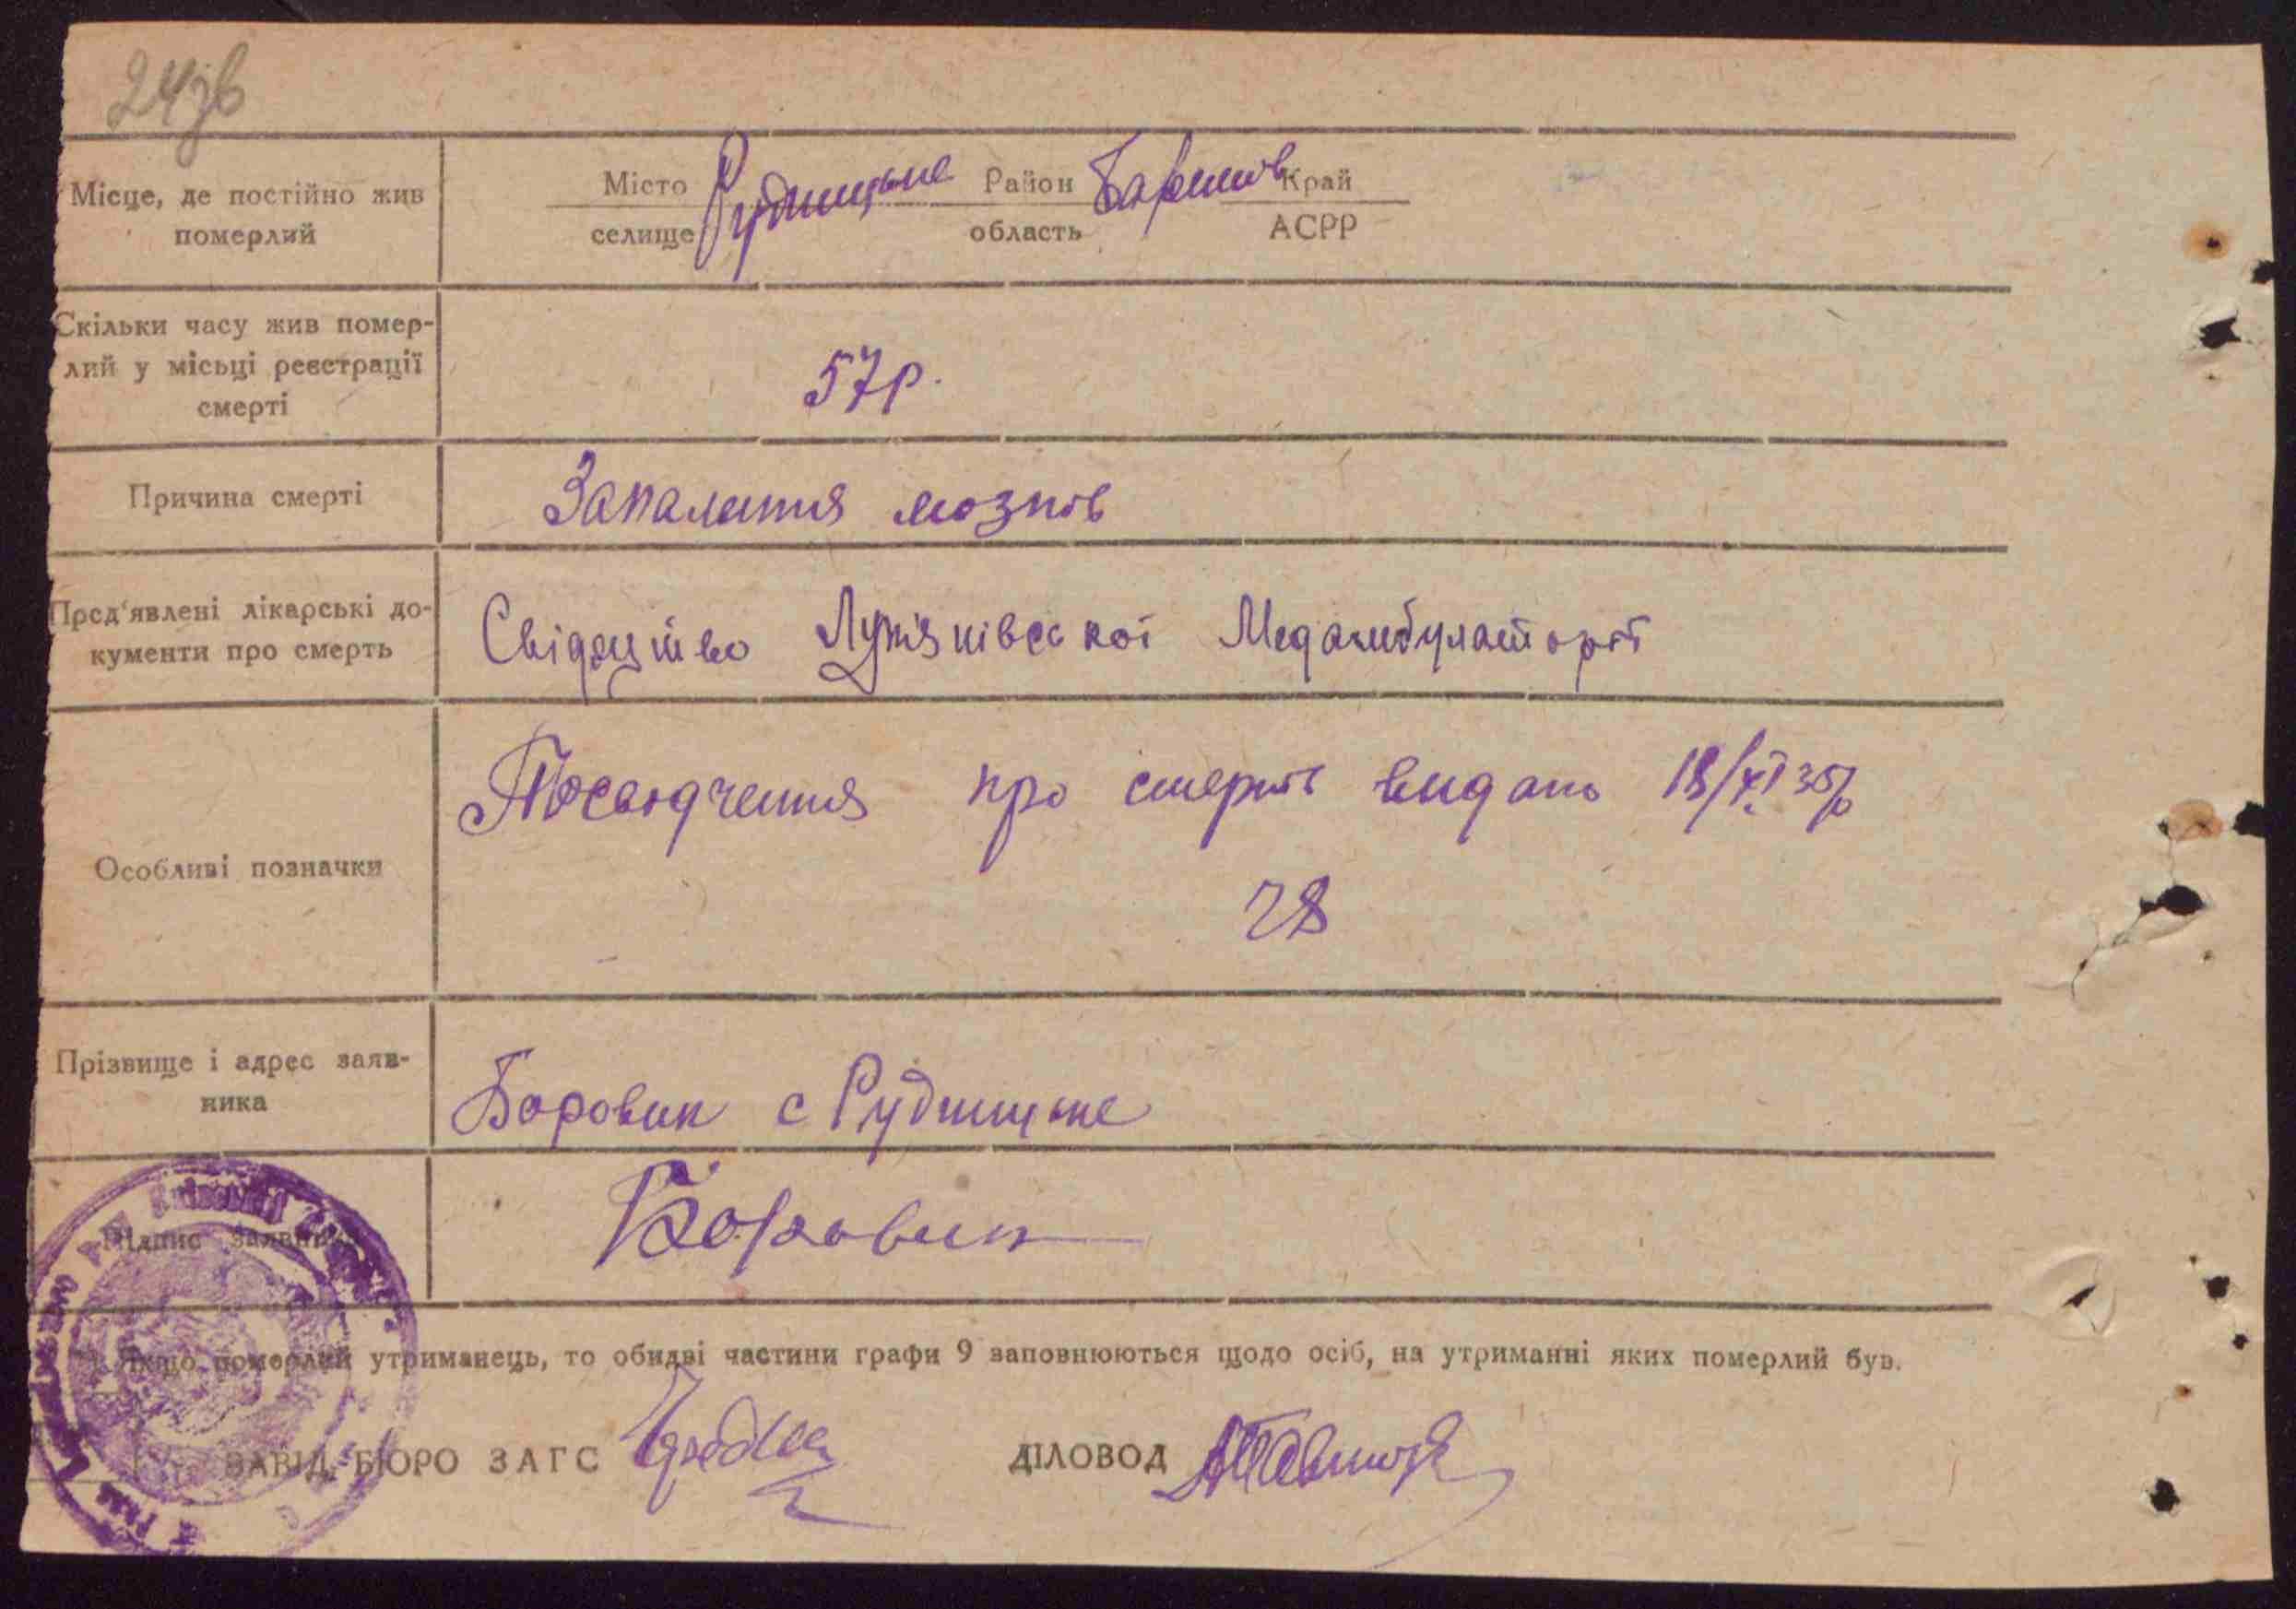 24зв
Місце, де постійно жив
померлий
Місто
селище
Рудницьке
Район
область
Баришів
Край
АСРР
Скільки часу жив помер-
лий у місьці реєстрації
смерті
57р.
Причина смерті
Запалення мозків
Пред'явлені лікарські до-
кументи про смерть
Свідоцтво Лук'янівсь кої Медамбулаторії
Особливі позначки
Посвідчення про смерть видано 18/XI 35р
28
Прізвище і адрес заяв-
ника
Боровик с Рудницьке
Підпис заявника
Боровик
Якщо померлий утриманець, то обидві частини графи 9 заповнюються щодо осіб, на утриманні яких померлий був.
ЗАВІД. БЮРО ЗАГС
ДІЛОВОД